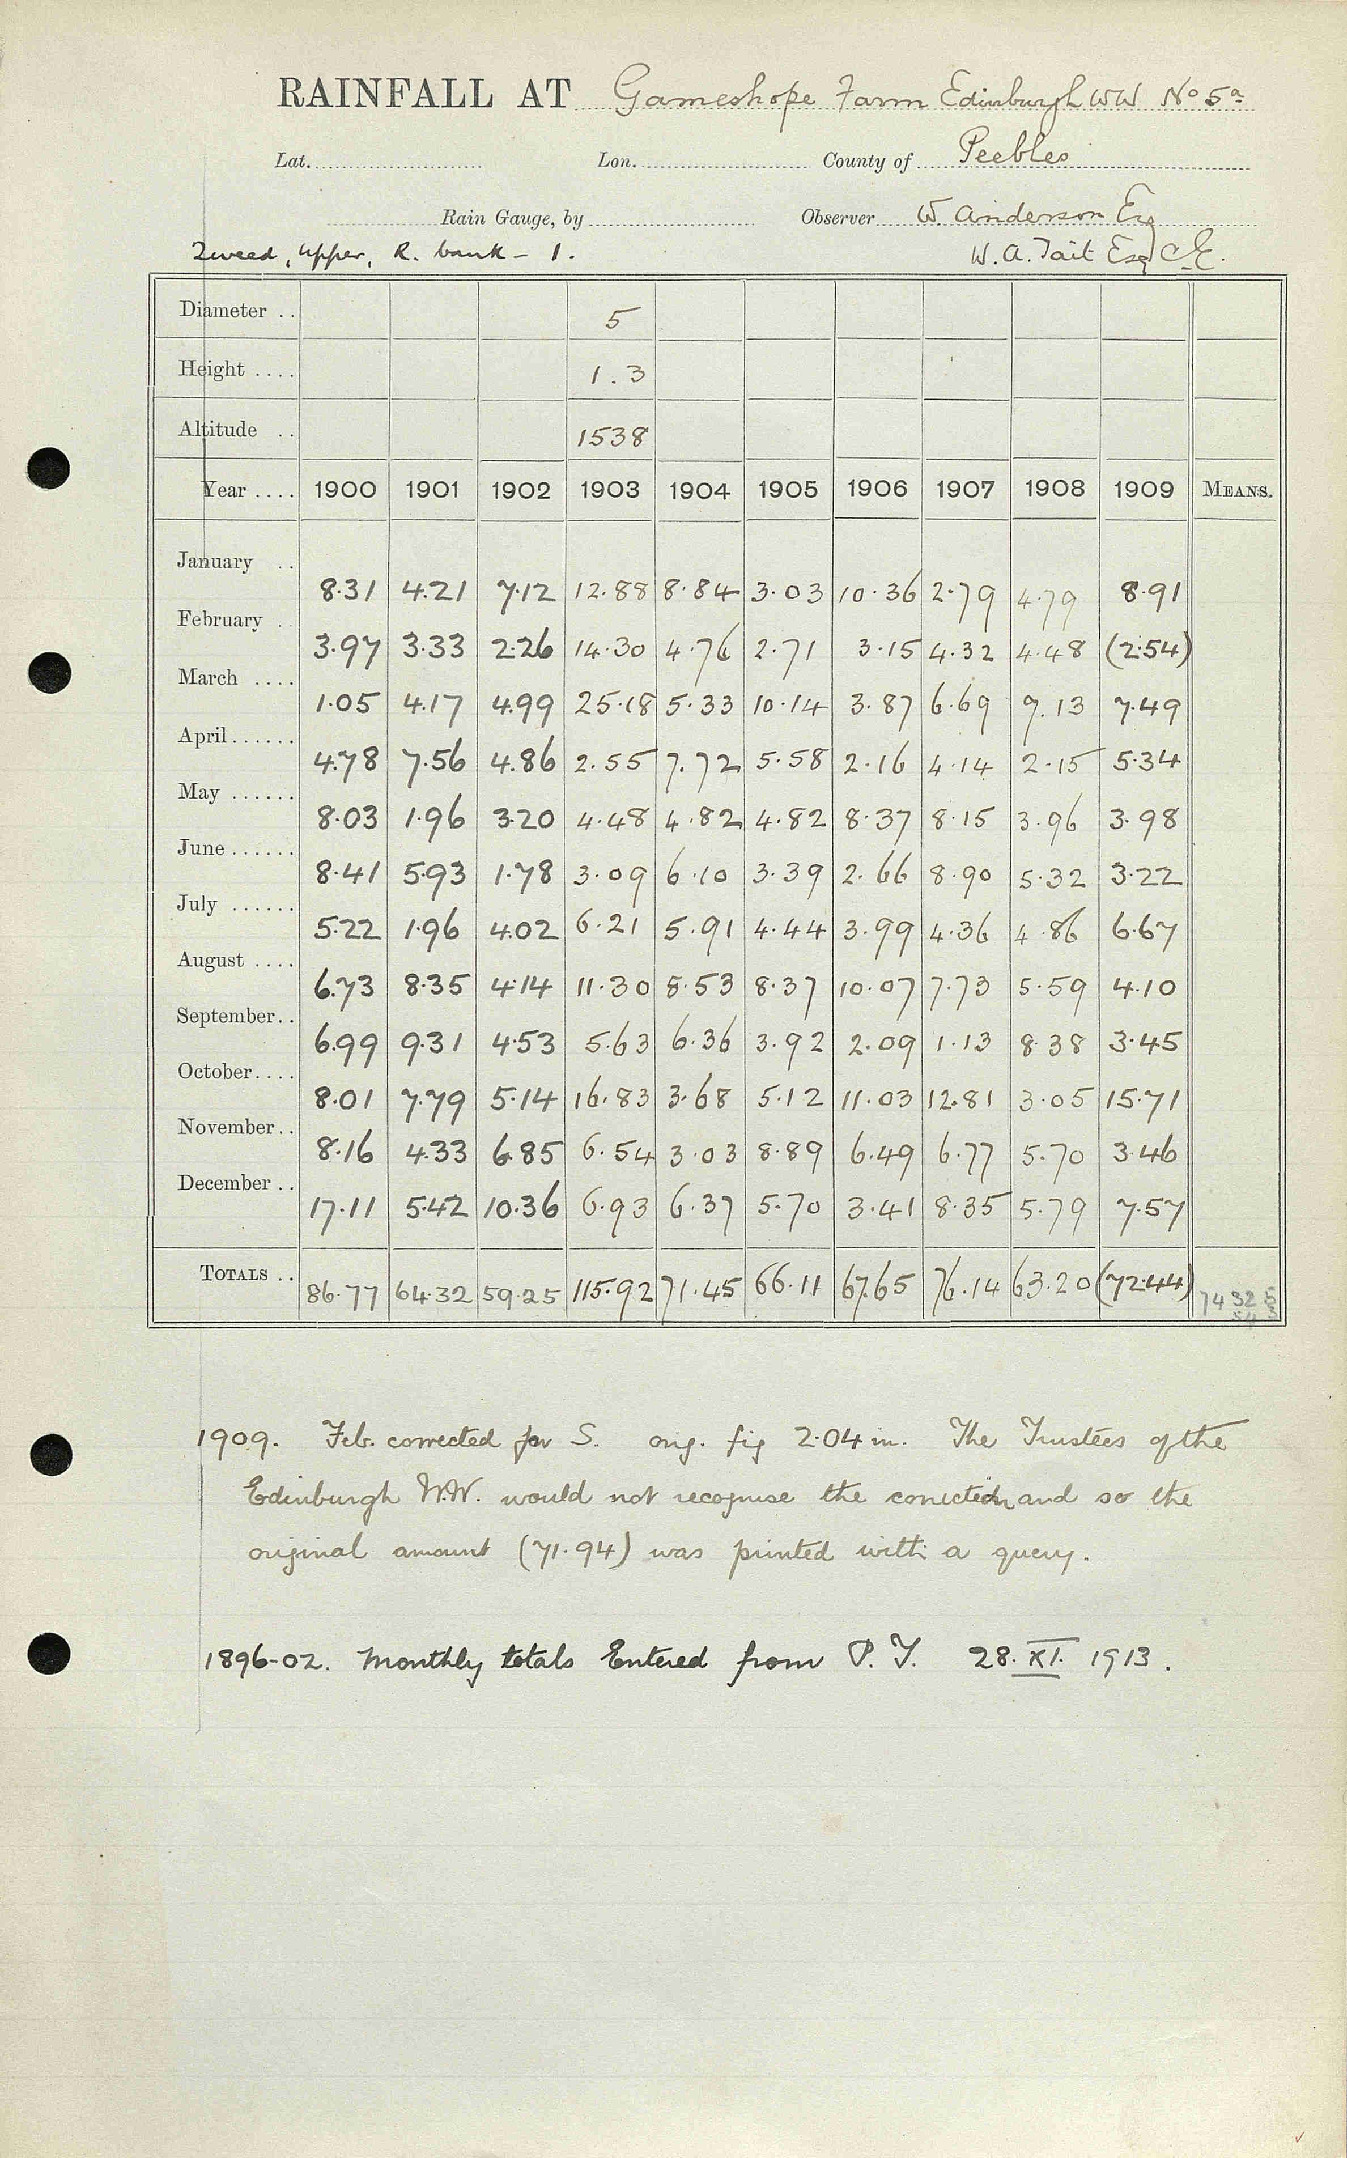 RAINFALL AT Gameshope Farm Edinburgh WW No 5a
Lat. Lon. County of Peebles
Rain Gauge, by Observer W. Anderson Esq
Tweed, Upper, R. bank - 1. W. A. Tait Esq C.E.
Diameter .. 5
Height .... 1.3
Altitude .. 1538
Year .... 1900 1901 1902 1903 1904 1905 1906 1907 1908 1909 MEANS.
January .. 8.31 4.21 7.12 12.88 8.84 3.03 10.36 2.79 4.79 8.91
February . 3.97 3.33 2.26 14.30 4.76 2.71 3.15 4.32 4.48 (2.54)
March .... 1.05 4.17 4.99 25.18 5.33 10.14 3.87 6.69 9.13 7.49
April...... 4.78 7.56 4.86 2.55 7.72 5.58 2.16 4.14 2.15 5.34
May ...... 8.03 1.96 3.20 4.48 4.82 4.82 8.37 8.15 3.96 3.98
June ...... 8.41 5.93 1.78 3.09 6.10 3.39 2.66 8.90 5.32 3.22
July ...... 5.22 1.96 4.02 6.21 5.91 4.44 3.99 4.36 4.86 6.67
August .... 6.73 8.35 4.14 11.30 8.53 8.37 10.07 7.73 5.59 4.10
September.. 6.99 9.31 4.53 5.63 6.36 3.92 2.09 1.13 8.38 3.45
October.... 8.01 7.79 5.14 16.83 3.68 5.12 11.03 12.81 3.05 15.71
November.. 8.16 4.33 6.85 6.54 3.03 8.89 6.49 6.77 5.70 3.46
December .. 17.11 5.42 10.36 6.93 6.37 5.70 3.41 8.35 5.79 7.57
TOTALS .. 86.77 64.32 59.25 115.92 71.45 66.11 67.65 76.14 63.20 (72.44) 74 32 5
1909. Feb. corrected for S. orig. fig 2.04 in. The Trustees of the
Edinburgh W.W. would not recognise the correction and so the
original amount (71.94) was printed with a query.
1896-02. Monthly totals Entered from P. Y. 28. XI. 1913.